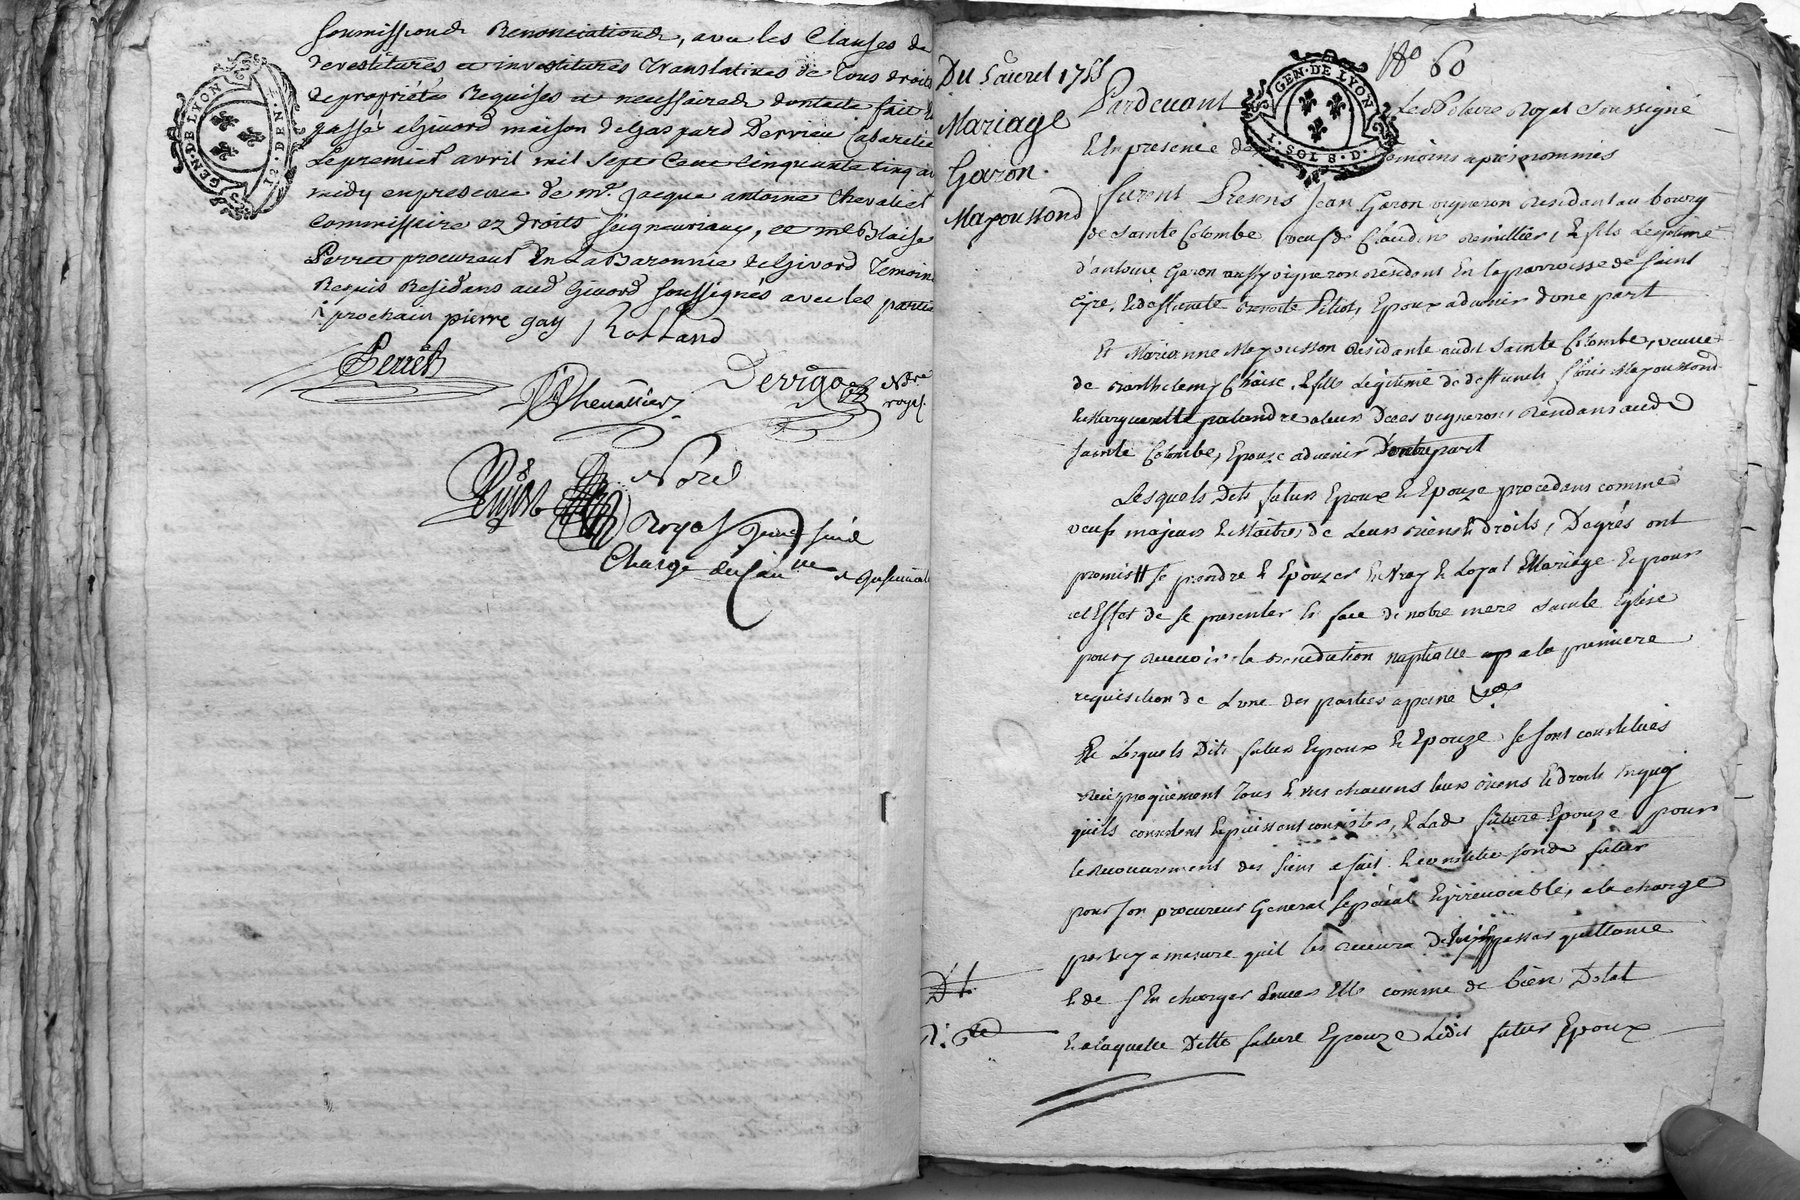 soumissions Renonciations, avec les Clauses de
devestitures et investitures translatives de tous droits
de propriétés Requises et necessaires dont acte fait et
passé a Givord maison de Gaspard Dervieu Cabaretier
Le premier avril mil sept cent cinquante cinq av
midy en presence de me. Jacque antoine Chevalier
Commissaire ez droits seigneuriaux, et me Blaise
Perret procureur En La Baronnie de Givord Temoins
Requis Residans aud Givord soussignés avec les parties
prochain pierre gay Rolland
Perret
Chevallier
Nre
royal
GEN·DE LYON
12·DEN·T
Du 5 avril 1755
Mariage
Garon
Mayoussond
No 60
GEN·DE LYON
1·SOL 8·D·
Pardevant Le Notaire Royal soussigné
Et En presence des temoins apres nommés
furent Presens Jean Garon vigneron residant au bourg
de sainte Colombe, veuf de Claudine Remillier, & fils Legitime
d'antoine Garon aussy vigneron residant En la parroisse de saint
Cyre, & deffunte Benoite Piliot, Epoux advenir d'une part
Et Marianne Mayousson residante audit sainte Colombe, veuve
de Barthelemy Chaise, & fille Légitime de deffunts Mayoussond
& Margueritte palandre vignerons residans aud
sainte Colombe, Epouze advenir D'autre part
Lesquels Dits futurs Epoux & Epouze procedans comme
veufs majeurs & Maitres de Leurs biens & droits, De grés ont
promis se prendre & Epouzer En vray & Loyal Mariage & pour
cet Effet de se presenter En face de notre mere sainte Eglise
pour y recevoir la benediction nuptialle a la premiere
requisition de L'une des parties a peine
Et Lesquels Dits futurs Epoux & Epouze se sont constitués
reciproquement tous & uns chacuns leurs biens & droits En quoy
quils consistent & puissent consister, & Lad future Epouze pour
le recouvrement des siens a fait & constitué sond futur
pour son procureur General special & irrevocable, a la charge
par luy a mesure quil les recevra De passer quittance
& de s'En charger Envers Elle comme de bien Dotal
& a laquelle Ditte future Epouze Ledit futur Epoux